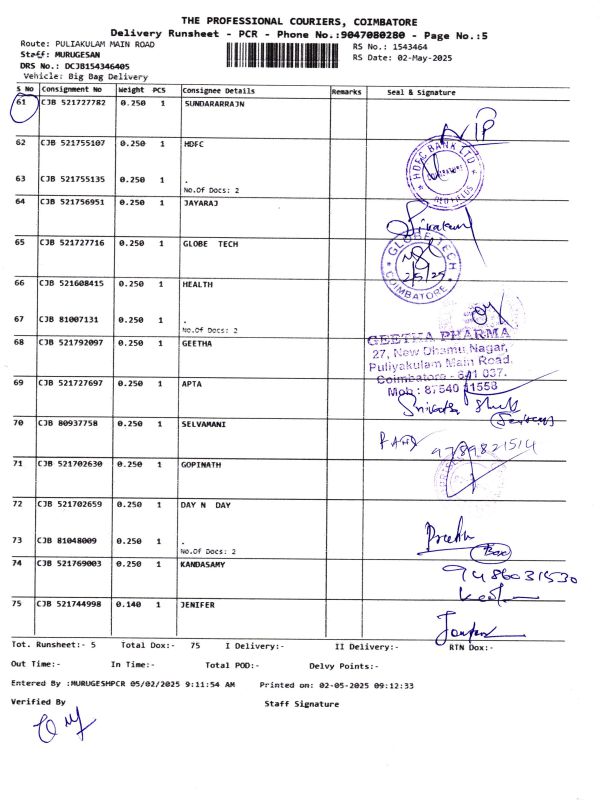 THE PROFESSIONAL COURIERS, COIMBATORE
Delivery Runsheet - PCR - Phone No.:9047080280 - Page No.:5
Route: PULIAKULAM MAIN ROAD
Staff: MURUGESAN
DRS No.: DCJB154346405
Vehicle: Big Bag Delivery
RS No.: 1543464
RS Date: 02-May-2025
S No Consignment No Weight PCS Consignee Details Remarks Seal & Signature
61 CJB 521727782 0.250 1 SUNDARARRAJN
62 CJB 521755107 0.250 1 HDFC
HDFC BANK LTD
63 CJB 521755135 0.250 1 .
No.Of Docs: 2
64 CJB 521756951 0.250 1 JAYARAJ
65 CJB 521727716 0.250 1 GLOBE TECH
GLOBE TECH
2/5/25
COIMBATORE
66 CJB 521608415 0.250 1 HEALTH
67 CJB 81007131 0.250 1 .
No.Of Docs: 2
68 CJB 521792097 0.250 1 GEETHA
GEETHA PHARMA
27, New Dhamu Nagar,
Puliyakulam Main Road,
Coimbatore - 641 037.
Mob : 87540 41558
69 CJB 521727697 0.250 1 APTA
70 CJB 80937758 0.250 1 SELVAMANI
9789821514
71 CJB 521702630 0.250 1 GOPINATH
72 CJB 521702659 0.250 1 DAY N DAY
73 CJB 81048009 0.250 1 .
No.Of Docs: 2
Box
74 CJB 521769003 0.250 1 KANDASAMY
9486031530
75 CJB 521744998 0.140 1 JENIFER
Tot. Runsheet:- 5 Total Dox:- 75 I Delivery:- II Delivery:- RTN Dox:-
Out Time:- In Time:- Total POD:- Delvy Points:-
Entered By :MURUGESHPCR 05/02/2025 9:11:54 AM Printed on: 02-05-2025 09:12:33
Verified By Staff Signature